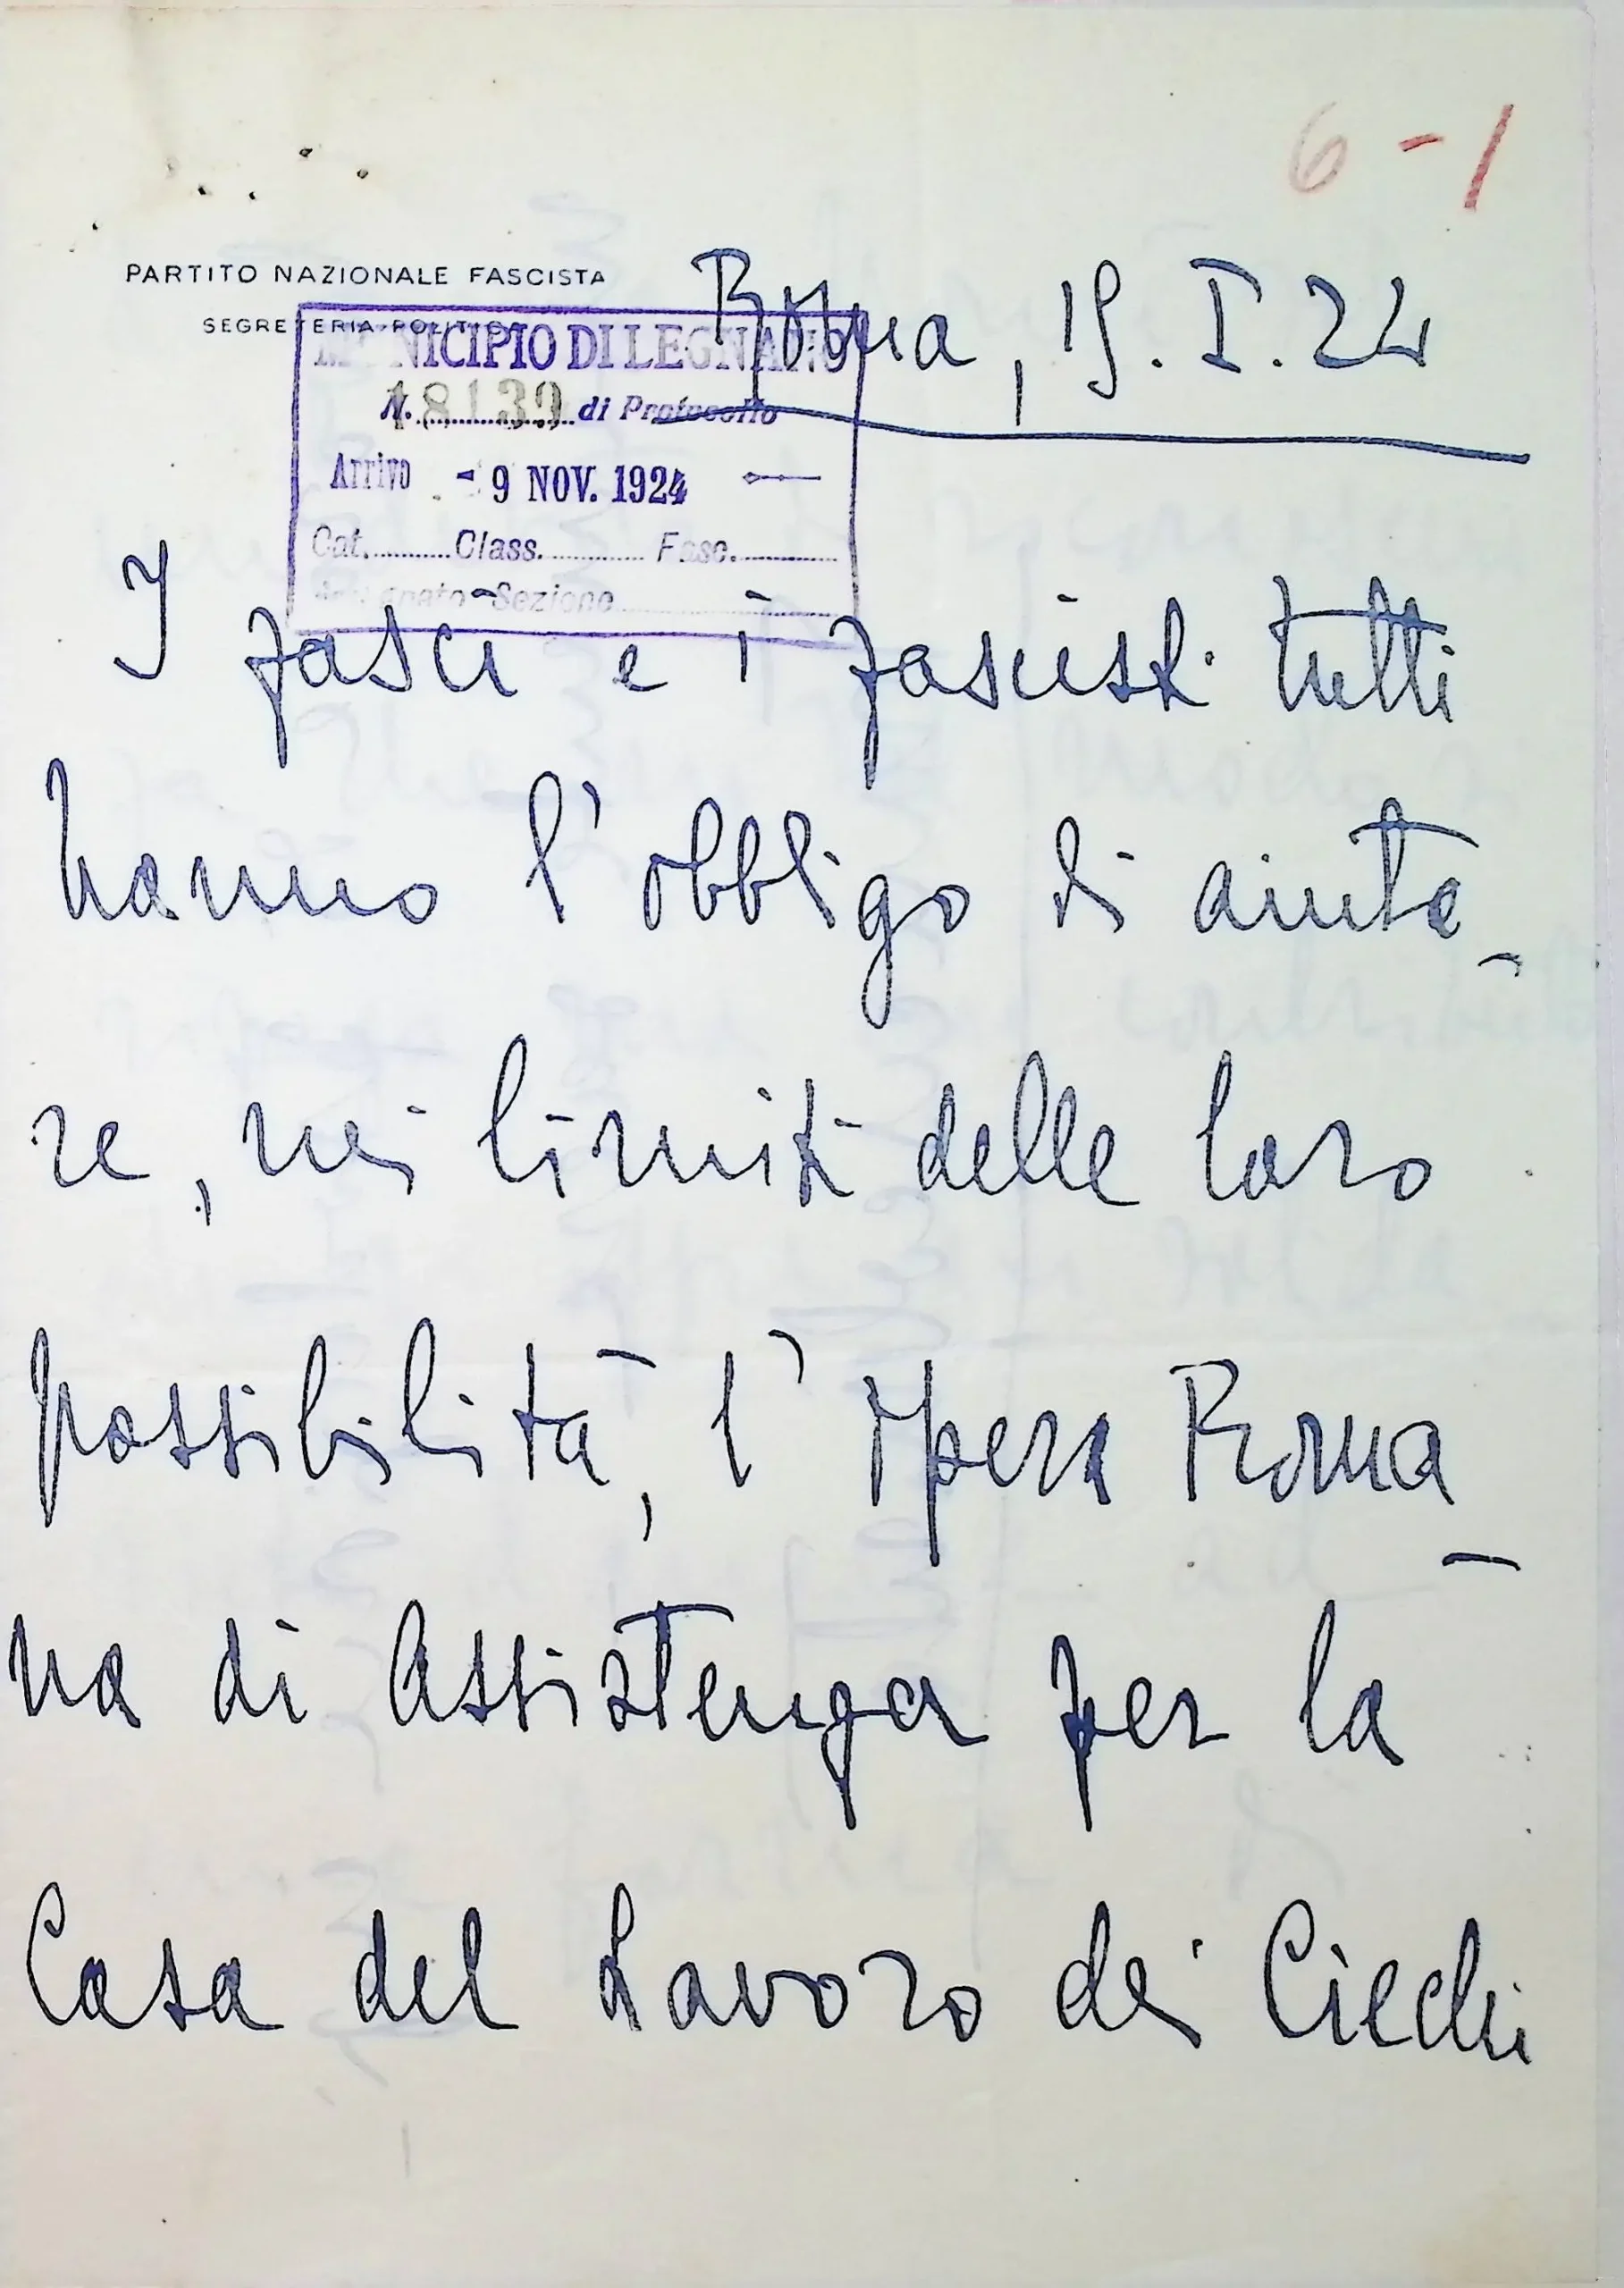 6-1
PARTITO NAZIONALE FASCISTA
SEGRETERIA POLITICA
Roma, 19.I.24
MUNICIPIO DI LEGNANO
N. 18139 di Protocollo
Arrivo - 9 NOV. 1924
Cat. Class. Fasc.
Assegnato Sezione
I fasci e i fascisti tutti
hanno l'obbligo di aiuta-
re, nei limiti delle loro
possibilità, l'opera Roma-
na di Assistenza per la
Casa del Lavoro dei Ciechi